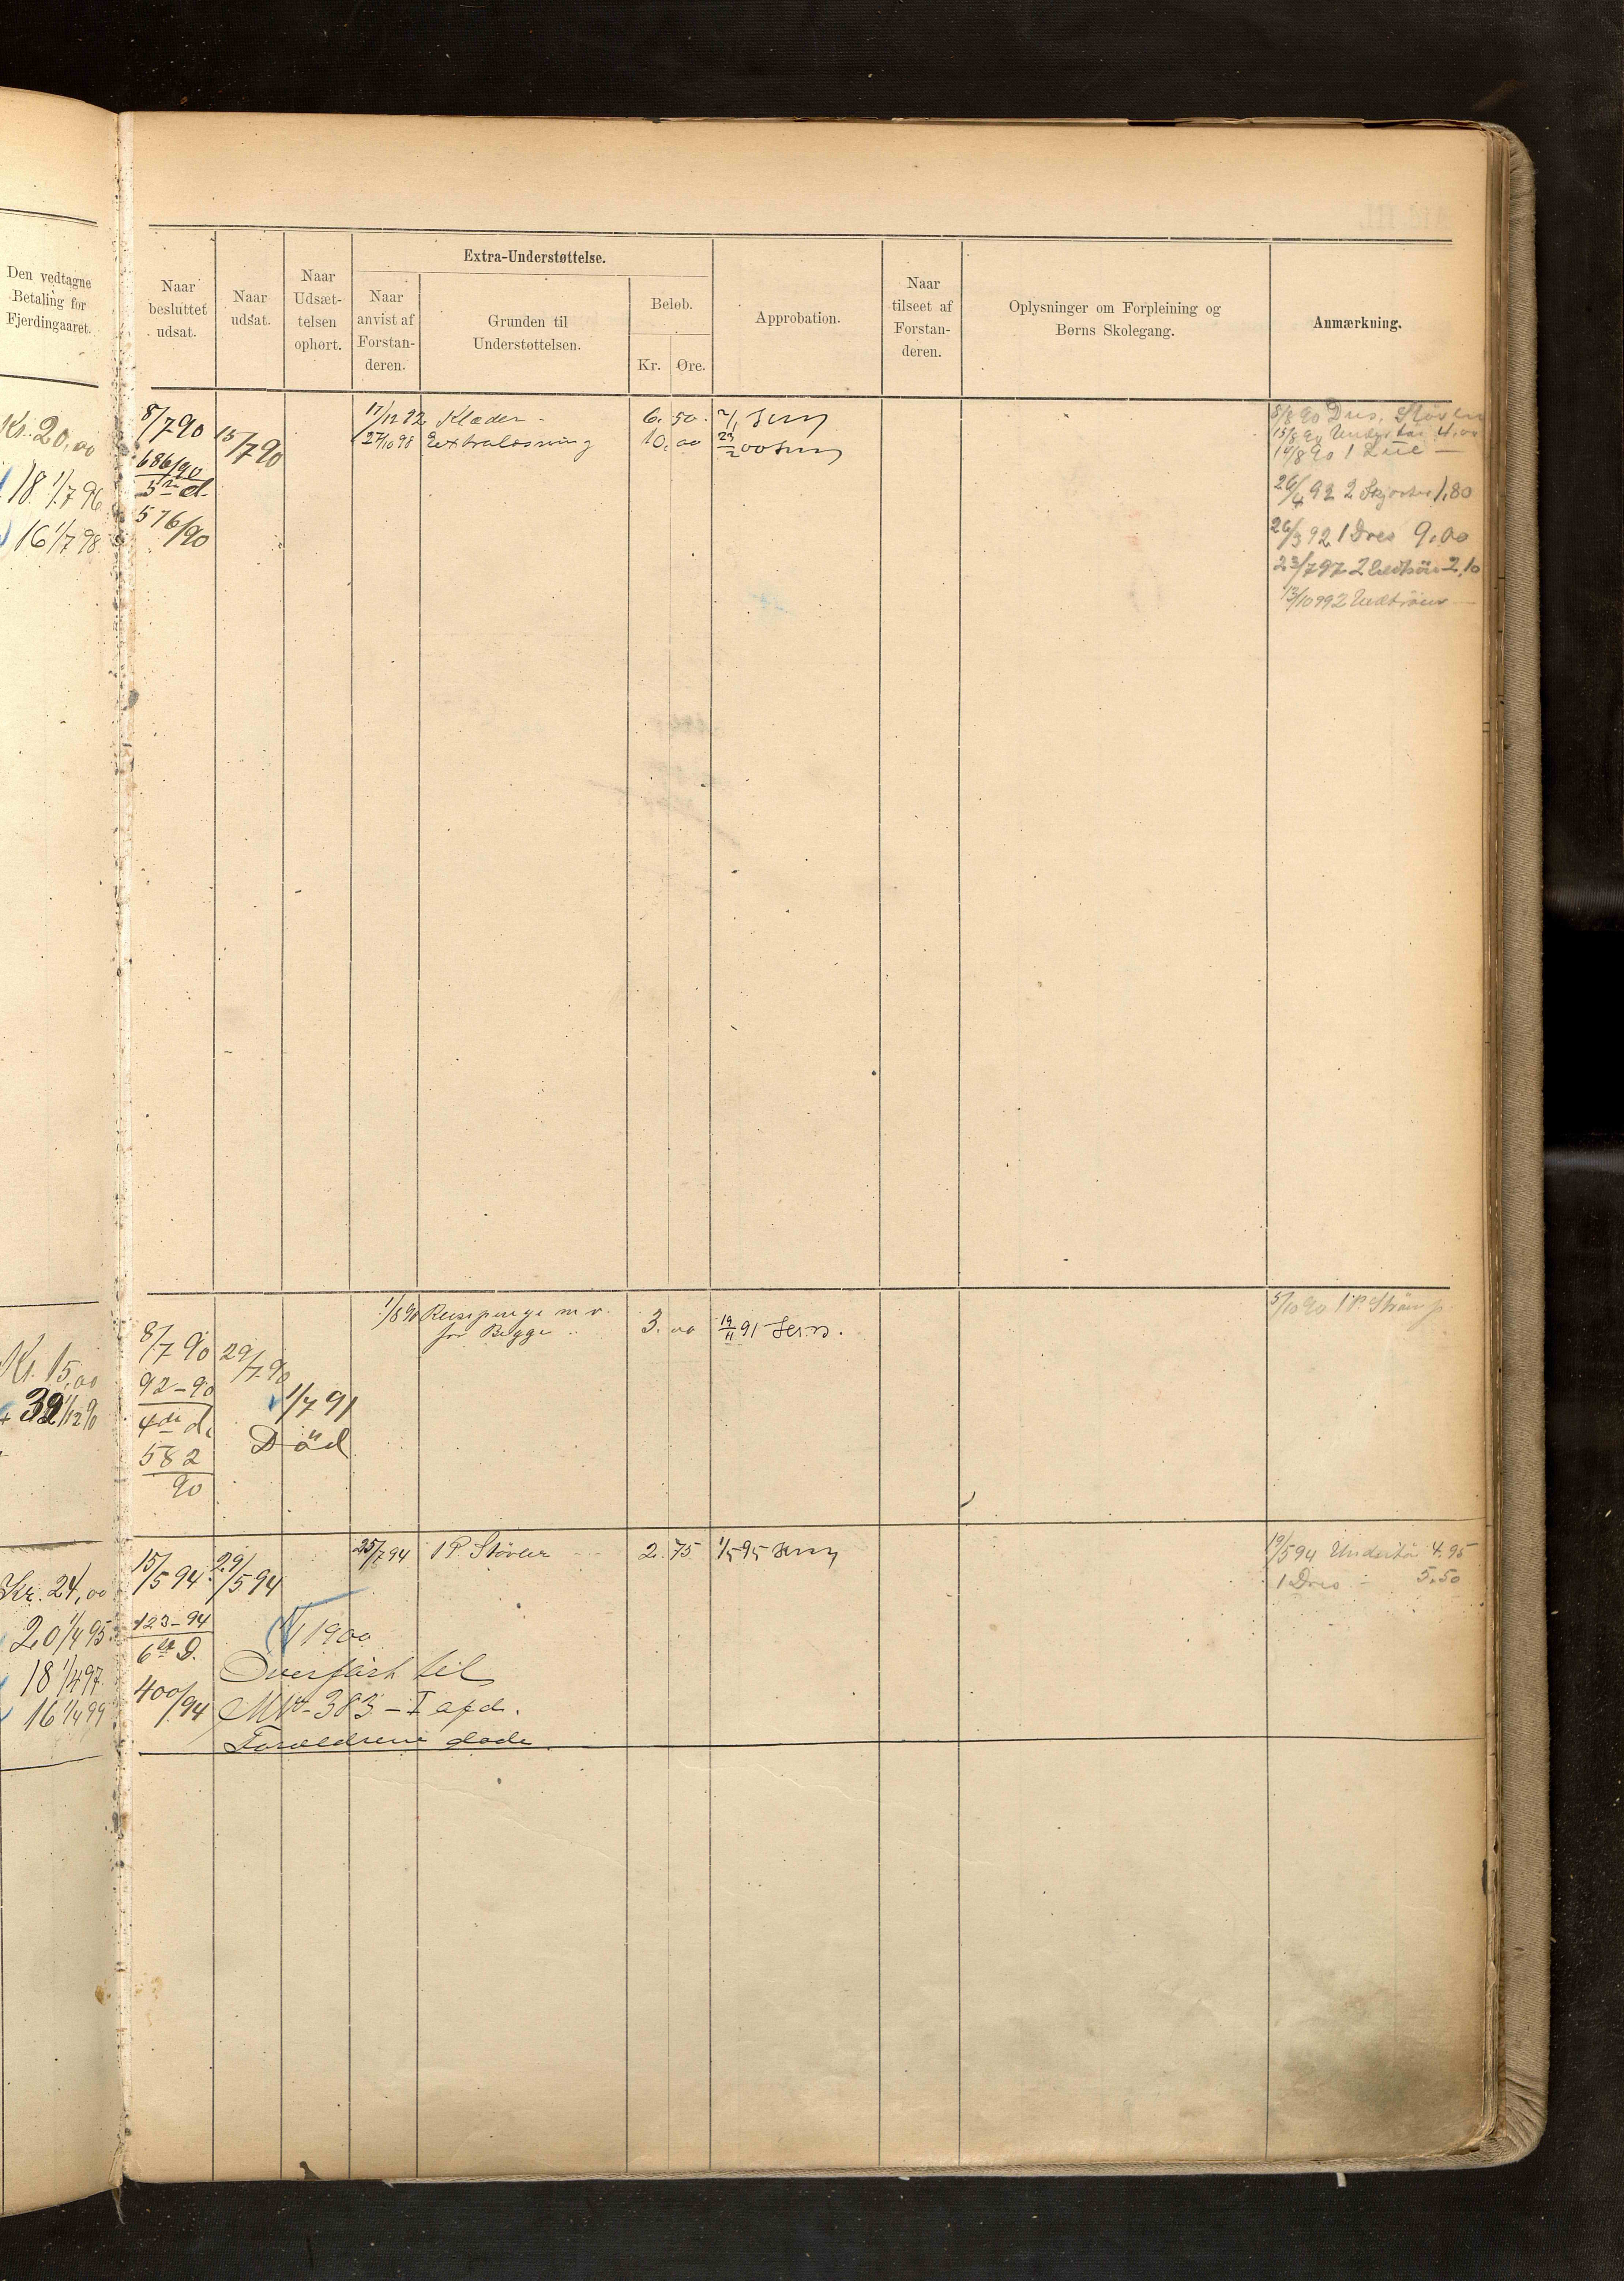 Den vedtagne
Betaling for
Fjerdingaaret.
Naar
besluttet
udsat.
Naar
udsat.
Naar
Udsæt-
telsen
ophørt.
Extra-Understøttelse.
Naar
anvist af
Forstan-
deren.
Grunden til
Understøttelsen.
Beløb.
Kr. Øre.
Approbation.
Naar
tilseet af
Forstan-
deren.
Oplysninger om Forpleining og
Børns Skolegang.
Anmærkning.
Kr. 20,00
18 1/7 96
16 1/7 98
8/7 90
686/90
5te d.
576/90
15/7 90
17/12 92 Klæder 6. 50
27/10 98 Extraløsning 10. 00
5/8 90 Dres. Støvler
15/8 90 Undertøi 4,00
14/8 90 1 Lue —
26/4 92 2 Skjorter 1,80
26/3 92 1 Dres 9,00
23/7 97 2 2,10
13/10 99 2
Kr. 15,00
39 1/12 90
8/7 90
92-90
4de d.
582
90
29/7 90
1/7 91
Död
1/8 90 Reisepenge m v. 3. 00 19/11 91
for Begge
5/10 90 1 P. Strømp
Kr. 24,00
20 1/4 95
18 1/4 97
16 1/4 99
15/5 94
123-94
6te D.
400/94
29/5 94
25/7 94 1 P. Støvler 2. 75 1/5 95
19/5 94 Undertøi 4.95
1 Dres - 5,50
1900
Overført til
No- 383 - I afd.
Forældrene døde